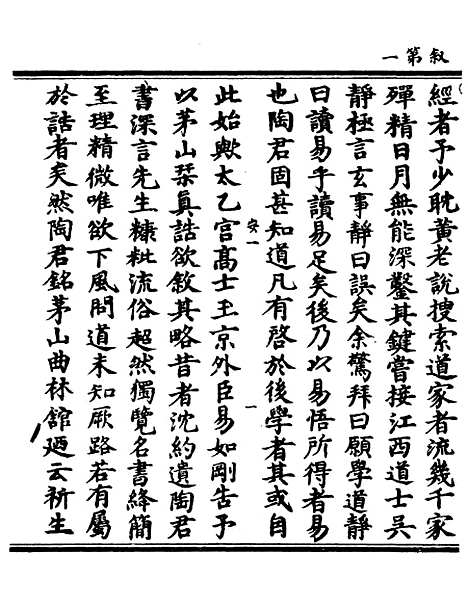 叙第一
經者予少耽黃老說搜索道家者流幾千家
殫精日月無能深鑿其鍵嘗接江西道士吳
靜極言玄事靜曰誤矣余驚拜曰願學道靜
曰讀易乎讀易足矣後乃以易悟所得者易
也陶君固甚知道凡有啓於後學者其或自
安一
一
此始歟太乙宮髙士王京外臣易如剛告予
以茅山栞眞誥欲敘其略昔者沈約遺陶君
書深言先生糠粃流俗超然獨覽名書絳簡
至理精微唯欲下風問道未知厥路若有屬
於誥者矣然陶君銘茅山曲林舘廼云祈生